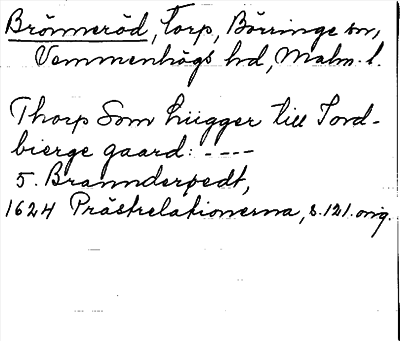 Brönneröd, Torp, Börringe sn,
Vemmenhögs hd, Malm. l.
Thorp Som ligger till Jord-
bierge gaard: ----
5. Brannderøedt,
1624 Prästrelationerna, s. 121. orig.